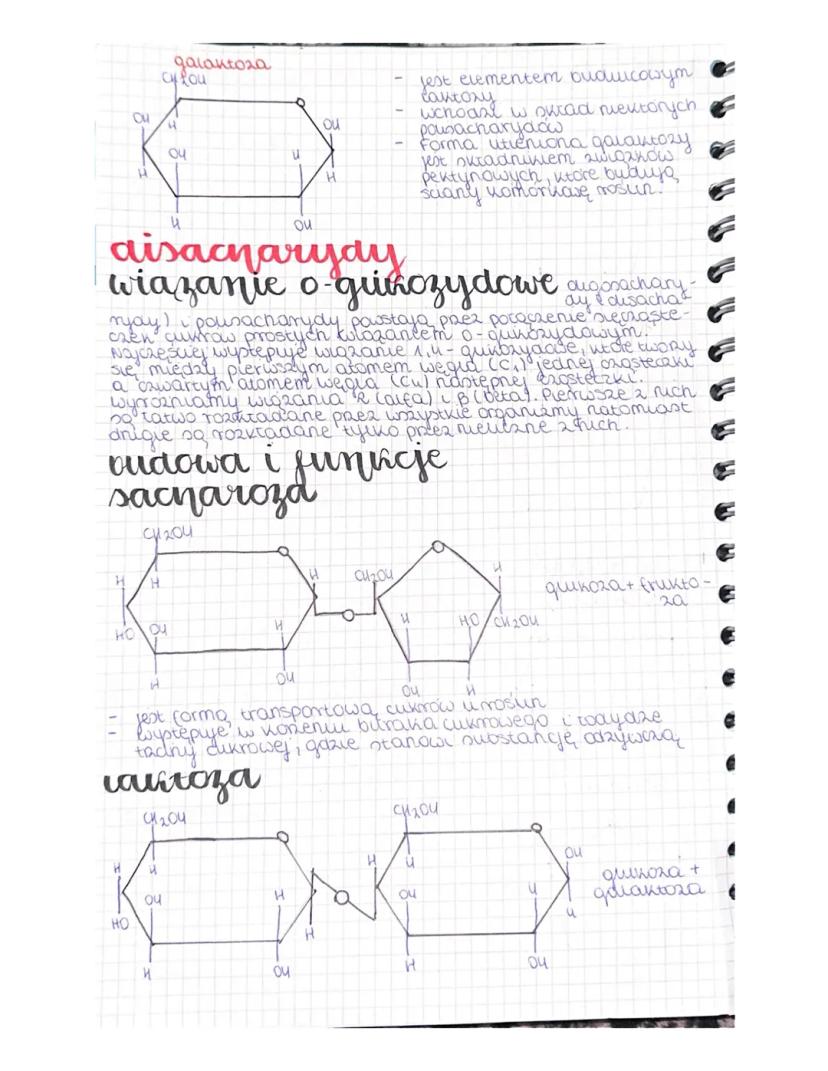 galaktoza
CH2OH
OH
H
OH
H
H
H
OH
H
OH
- jest elementem budulcowym
laktozy
- wchodzi w skład niektórych
polisacharydów
- forma utleniona galaktozy
jest składnikiem związków
pektynowych, które budują
ściany komórkowe roślin.
disacharydy
wiązanie o-glikozydowe oligosachary-
dy (disacha-
rydy) i polisacharydy powstają przez połączenie się cząste-
czek cukrów prostych wiązaniem o-glikozydowym.
Najczęściej występuje wiązanie 1,4-glikozydowe, które tworzy
się między pierwszym atomem węgla (C1) jednej cząsteczki
a czwartym atomem węgla (C4) następnej cząsteczki.
wyróżniamy wiązania α (alfa) i β (beta). Pierwsze z nich
są łatwo rozkładane przez wszystkie organizmy natomiast
drugie są rozkładane tylko przez nieliczne z nich.
budowa i funkcje
sacharoza
CH2OH
O
H
H
HO
OH
H
H
OH
H
O
CH2OH
O
H
H
HO
CH2OH
OH
H
glikoza + frukto-
za
- jest formą transportową cukrów u roślin
- występuje w korzeniu buraka cukrowego i łodydze
trzciny cukrowej, gdzie stanowi substancję odżywczą
laktoza
CH2OH
O
H
H
HO
OH
H
H
OH
H
O
CH2OH
O
H
H
OH
H
H
OH
OH
H
glukoza +
galaktoza